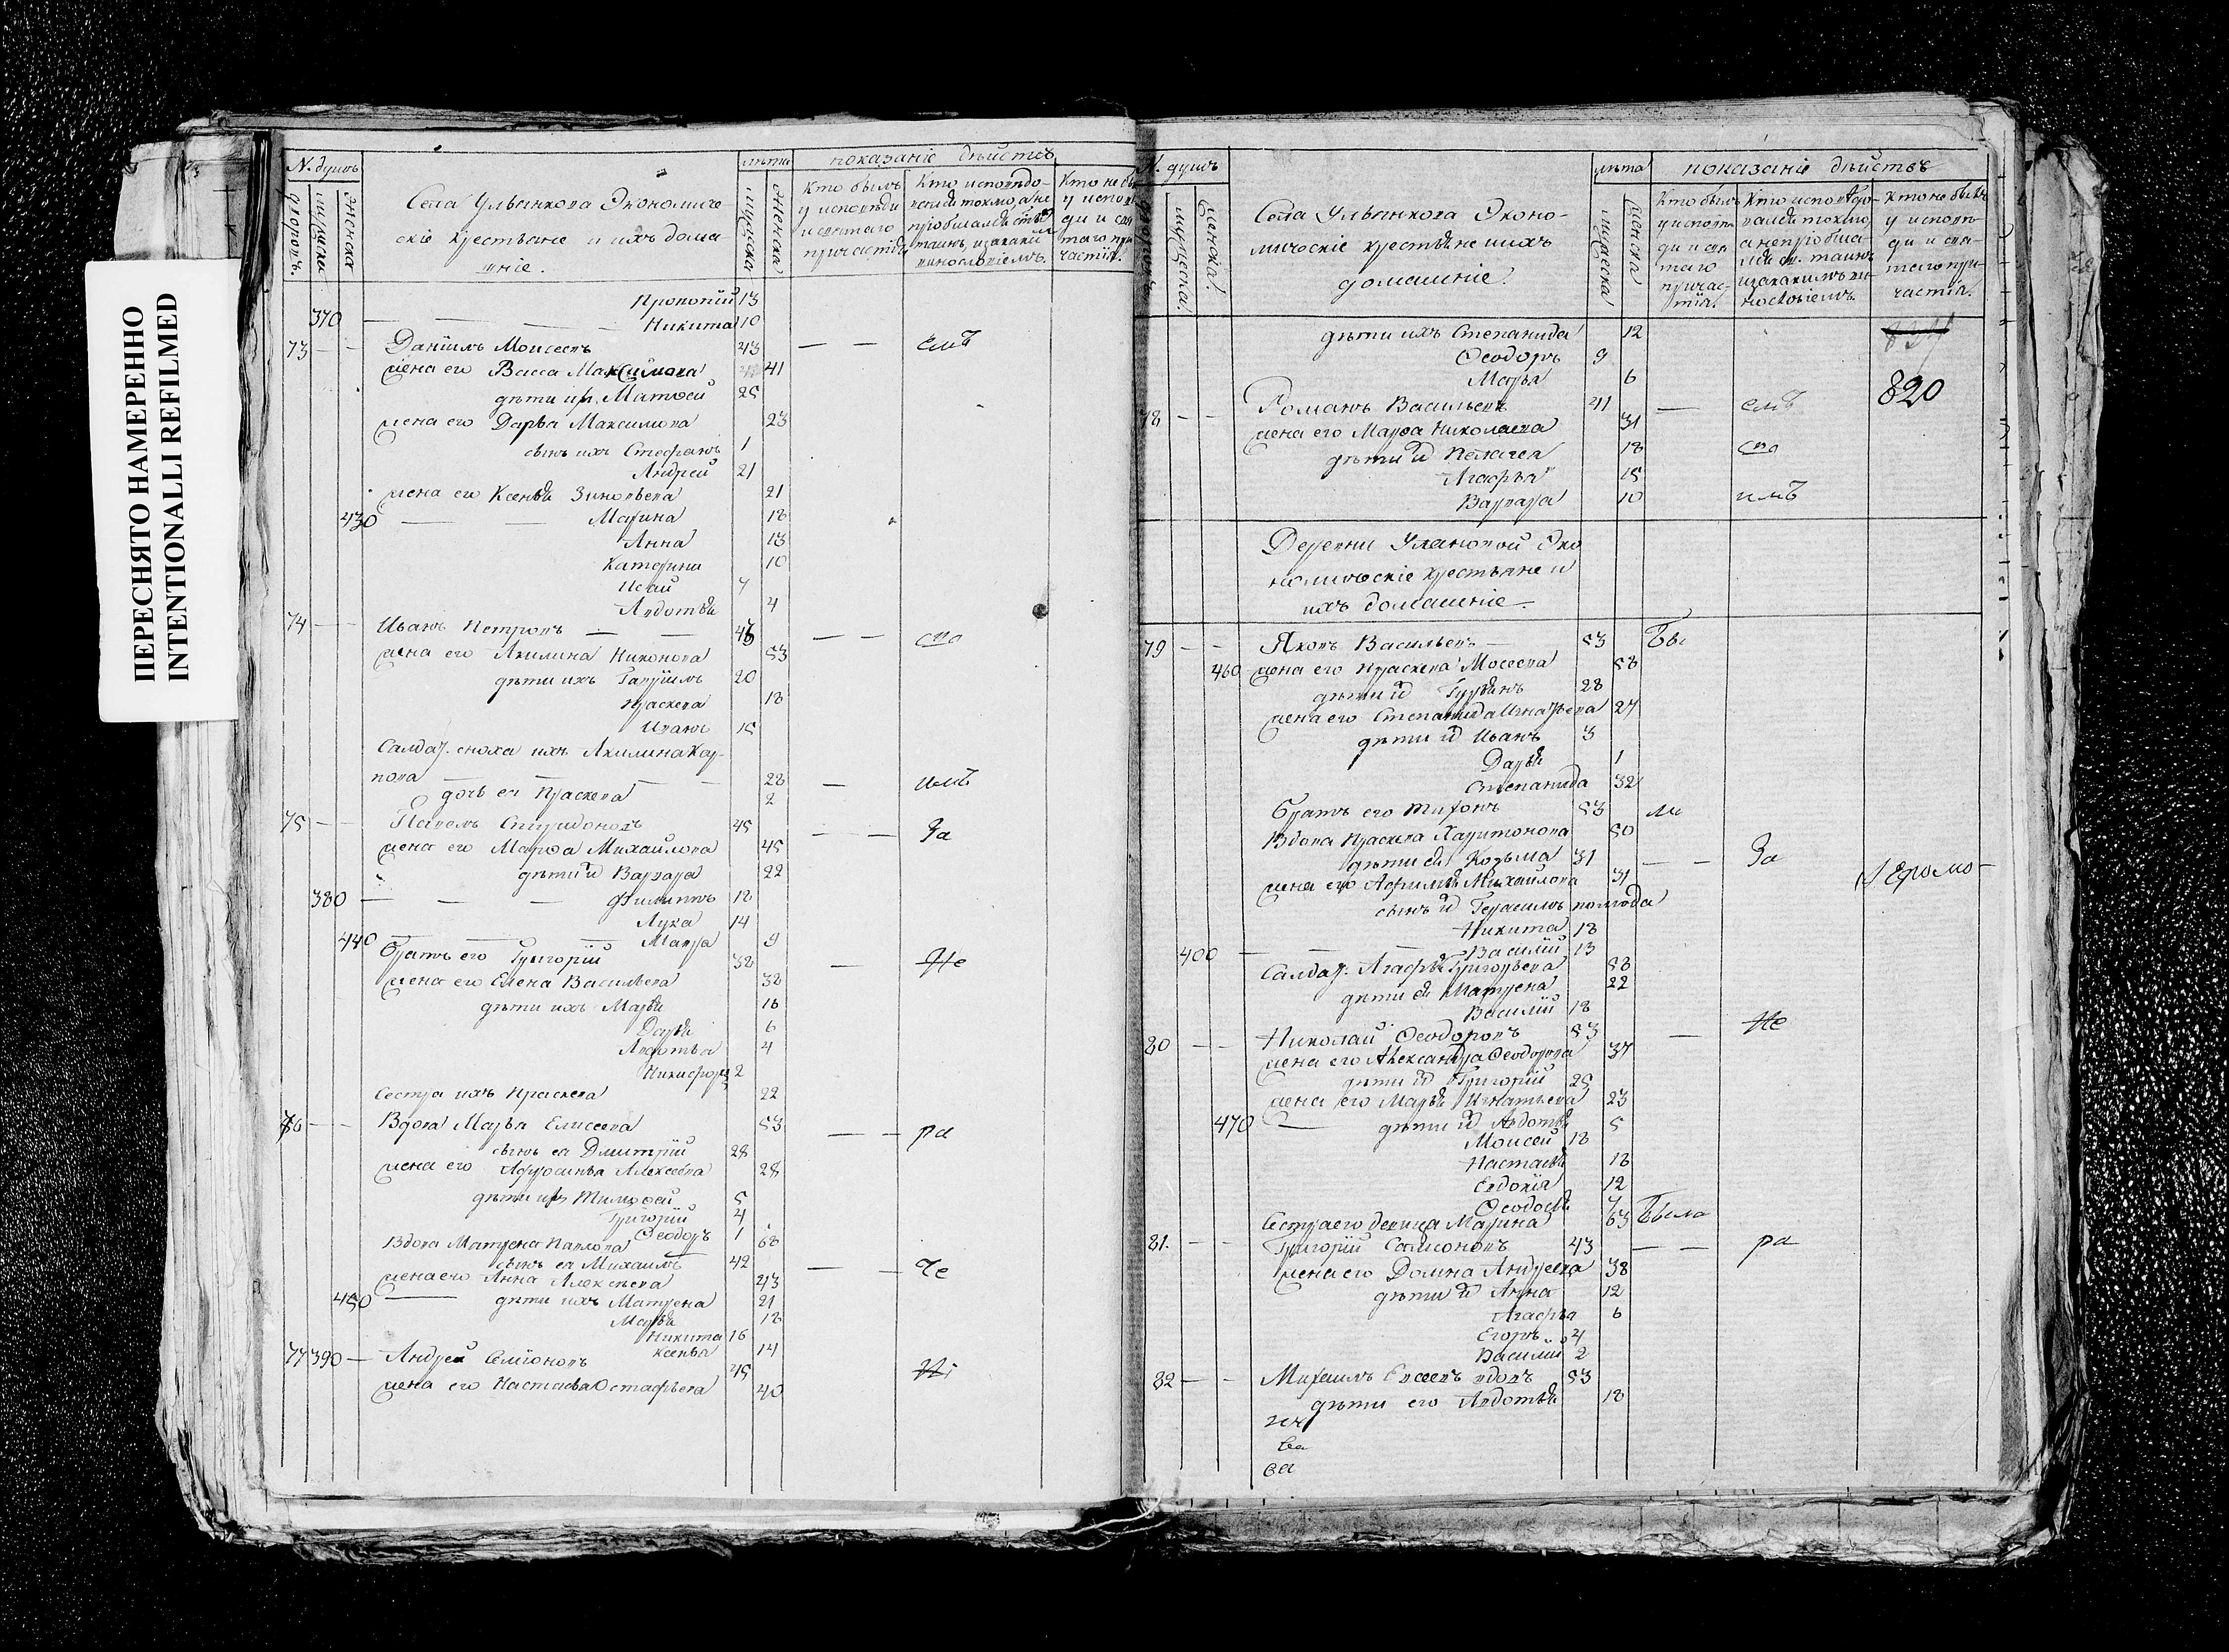 ПЕРЕСНЯТО НАМЕРЕННО
INTENTIONALLI REFILMED
N. душъ
лѣта
показаніе дѣйствъ
дворовъ.
мужеска
женска
Села Ульянкова Экономиче-
скіе крестьяне и ихъ дома-
шніе.
мужеска
женска
Кто былъ
у исповѣди
и святаго
причастія
Кто исповѣдо-
вался токмо, а не
пріобщался
таинъ, и за какимъ
винословіемъ.
Кто не бы
у испов
ди и свя
таго при
частія.
Прокопій 13
370 — — — — Никита 10
73 — — Даніилъ Моисеевъ 43 — —
жена его Васса Максимова 41
дѣти ихъ Матѳей 25
жена его Дарья Максимова 23
сынъ ихъ Стефанъ 1
Андрей 21
жена его Ксенья Зиновьева 21
430 — — Марина 18
Анна 13
Катерина 10
Исай 7
Авдотья 4
74 — — Иванъ Петровъ — — — —
жена его Акилина Никонова 53
дѣти ихъ Гаврилъ 20
Праскева 18
Иванъ 15
Салдат. сноха ихъ Акилина Кар-
пова — — — — 28 —
дочь ея Праскева 2
75 — — Павелъ Спиридоновъ 45 — — За
жена его Марѳа Михайлова 45
дѣти ихъ Варвара 22
380 — — — Филиппъ 18
Лука 14
440 — — — Мавра 9
братъ его Григорій 38 — Не
жена его Елена Васильева 38
дѣти ихъ Марья 16
Дарья 6
Авдотья 4
Никифоръ 2
Сестра ихъ Праскева 22
76 — — Вдова Марья Елисеева 53 — — ра
сынъ ея Дмитрій 28
жена его Афросинья Алексеева 28
дѣти ихъ Тимоѳей 5
Григорій 4
Ѳеодоръ 1
Вдова Матрена Павлова 68
сынъ ея Михаилъ 42 — — че
жена его Анна Алексеева 43
450 — дѣти ихъ Матрена 21
Марья 18
Никита 16
Ксенья 14
77 390 — Андрей Семіоновъ 45
жена его Настасья Остафьева 40
N. душъ
лѣта
показаніе дѣйствъ
мужеска.
женска.
Села Ульянкова Эконо-
мическіе крестьяне и ихъ
домашніе.
мужеска
женска
Кто былъ
у исповѣ
ди и свя
таго
причас-
тія.
Кто исповѣдо-
вался токмо,
а не пріобща-
лся св. таинъ
и за какимъ ви-
нословіемъ.
Кто не былъ
у исповѣ-
ди и свя-
таго при-
частія.
дѣти ихъ Степанида 12
Ѳеодоръ 9
Марья 6
820
78 — — Романъ Васильевъ 41 —
жена его Марѳа Николаева 31
дѣти ихъ Пелагея 18
Агафья 15
Варвара 10
Деревни Улановой Эко
номическіе крестьяне и
ихъ домашніе.
79 — — Яковъ Васильевъ — 53 Бы
460 жена его Праскева Мосеева 58
дѣти ихъ Гурьянъ 28
жена его Степанида Игнатьева 27
дѣти ихъ Иванъ 3
Дарья 1
Степанида 32
братъ его Тихонъ 53 ли
Вдова Праскева Харитонова 50
дѣти ея Козьма 31 — — За
жена его Афимья Михайлова 31
сынъ ихъ Герасимъ полгода
Никита 18
400 — — — Василій 13
Салдат. Агафья Григорьева 58
дѣти ея Матрена 22
Василій 18
80 — — Николай Ѳеодоровъ 53 — Не
жена его Александра Ѳеодорова 37
дѣти ихъ Григорій 25
жена его Марья Игнатьева 23
470 — дѣти ихъ Авдотья 5
Моисей 18
Настасья 18
Евдокія 12
Ѳеодосья 7
Сестра его девица Марина 63 Была
81. — — Григорій Самсоновъ 43 — — ра
жена его Домна Андреева 38
дѣти ихъ Анна 12
Агафья 6
Егоръ 4
Василій 2
82 — — Михаилъ Евсеевъ вдовъ 53
дѣти его Авдотья 18